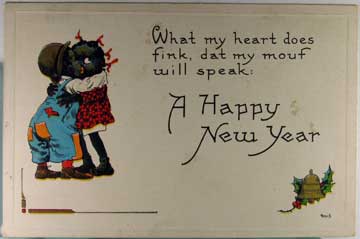 What my heart does
fink, dat my mouf
will speak:
A Happy
New Year